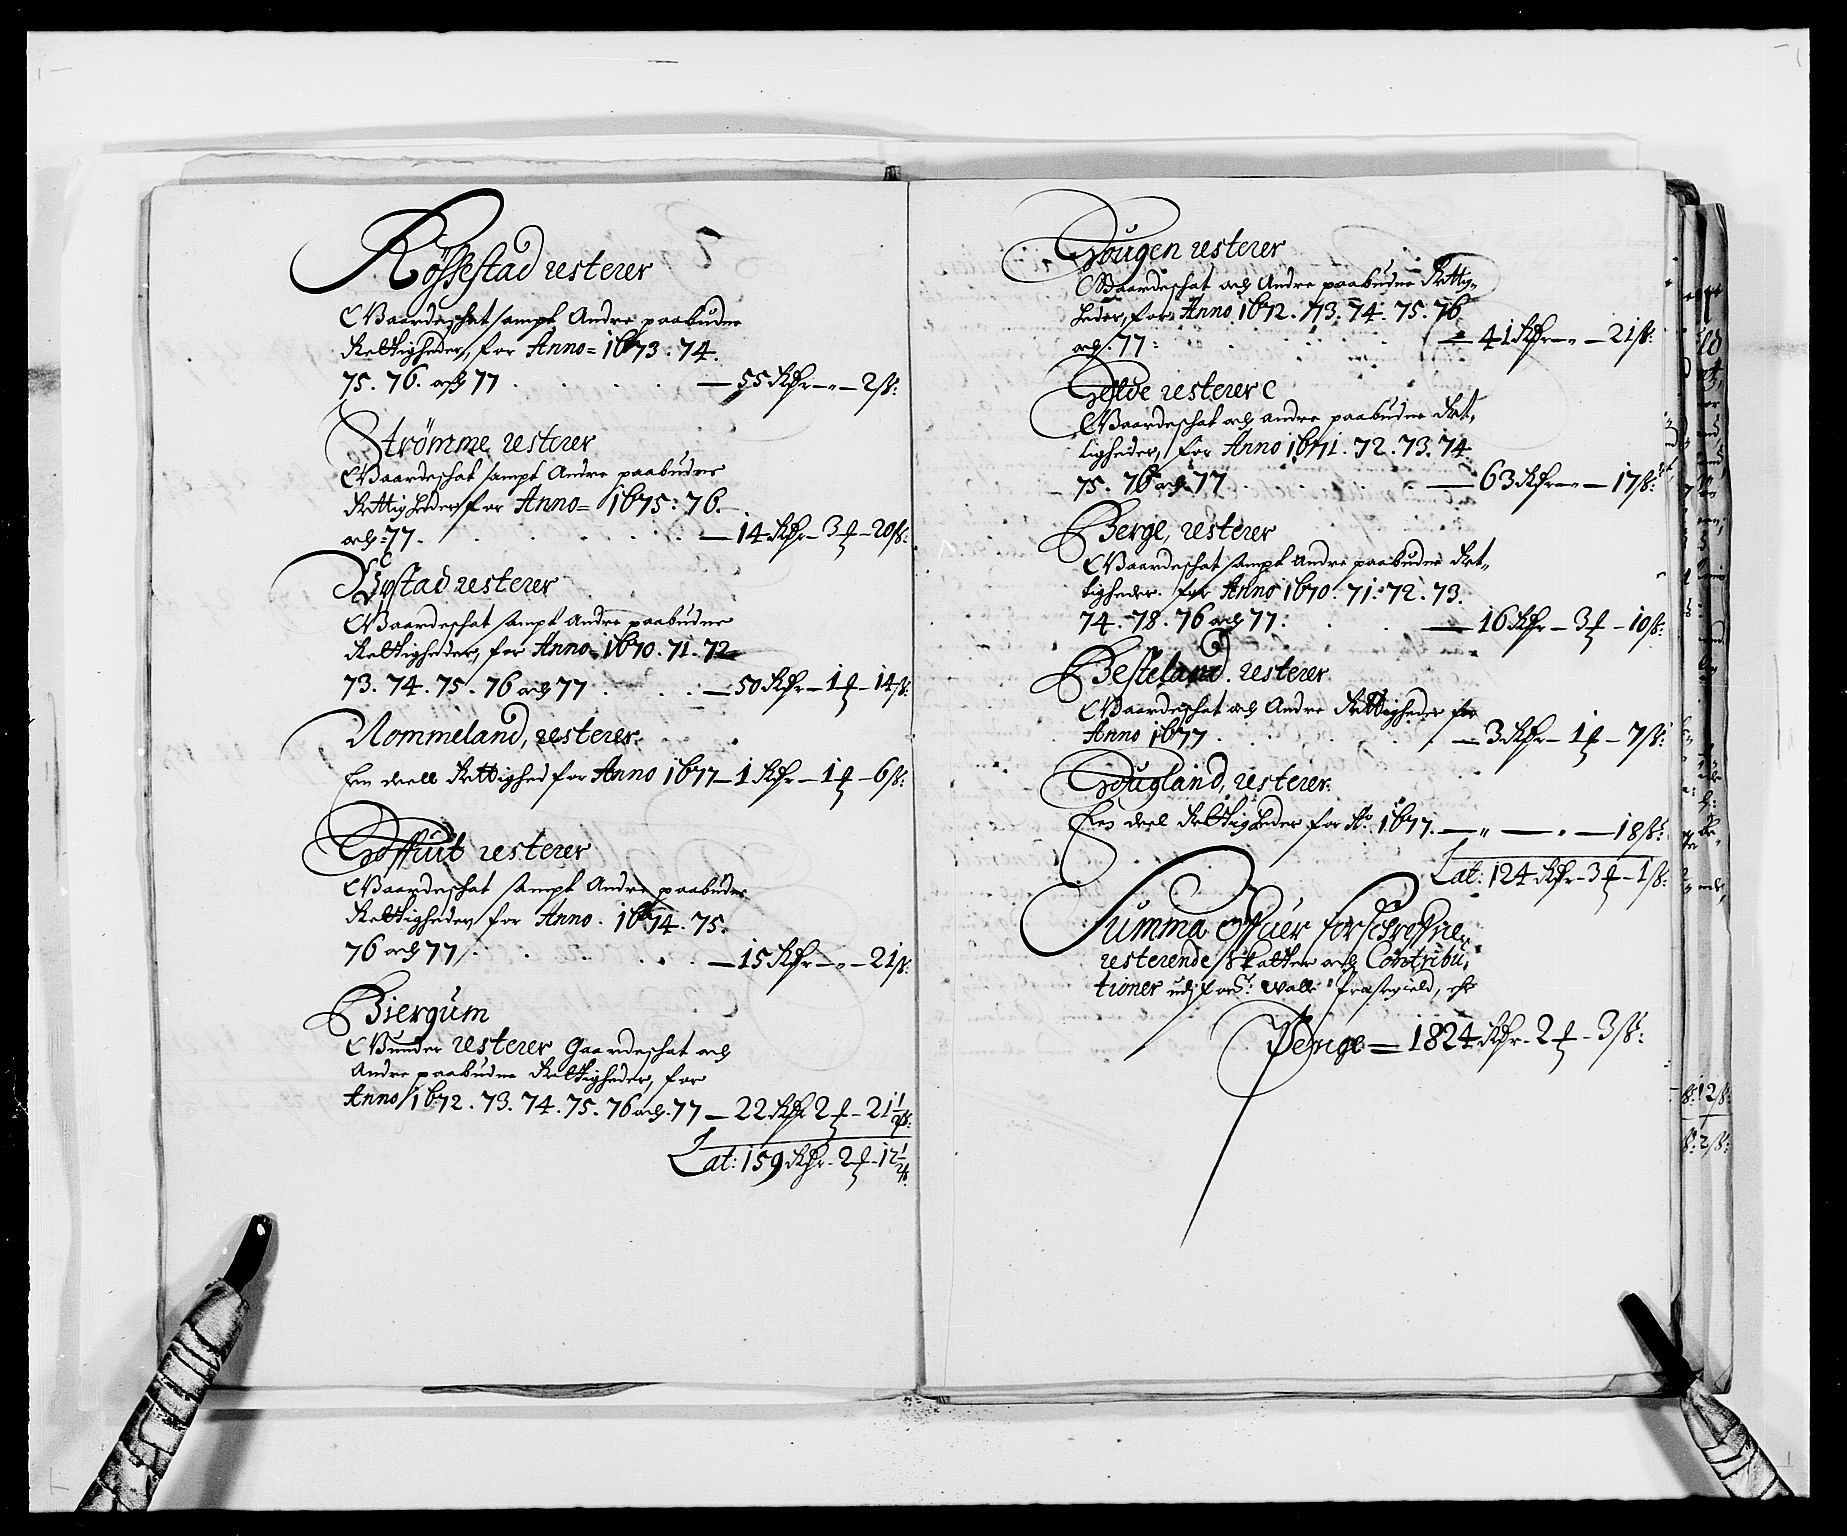 Rössestad resterer
Gaardeschat sampt Andre paabudne
Rettigheder, for Anno= 1673. 74.
75. 76. och 77 . . . . — 55 Rdr — „ — 2 ß:
Strömme resterer
Gaardeschat sampt Andre paabudne
Rettigheder for Anno= 1675: 76.
och 77. . . . . — 14 Rdr — 3 ƒ — 20 ß:
Systad resterer
Gaardeschat sampt Andre paabudne
Rettigheder, for Anno= 1670. 71. 72
73. 74. 75. 76 och 77 . . . — 50 Rdr — 1 ƒ — 14 ß:
Nommeland, resterer
Een deell Rettighed for Anno 1677 — 1 Rdr — 1 ƒ — 6 ß:
resterer
Gaardeschat sampt Andre paabudne
Rettigheder for Anno. 1674. 75.
76 och 77 . . . . — 15 Rdr — „ — 21 ß:
Biergum
Wunder resterer Gaardeschat och
Andre paabudne Rettigheder, for
Anno 1672. 73. 74. 75. 76 och 77 — 22 Rdr 2 ƒ — 21 1/2 ß:
Lat: 159 Rdr — 2 ƒ — 12 1/2 ß:
Hougen resterer
Gaardeschat och Andre paabudne Rettig-
heder, for Anno 1672. 73. 74. 75. 76
och 77: . . . . — 41 Rdr — „ — 21 ß:
resterer
Gaardeschat och andre paabudne Ret-
tigheder, for Anno 1671. 72. 73. 74
75. 76 och 77 . . . . — 63 Rdr — „ — 17 ß:
Berge, resterer
Gaardeschat sampt Andre paabudne Ret-
tigheder. for Anno 1670. 71. 72. 73.
74. 78. 76 och 77: . . . — 16 Rdr — 3 ƒ — 10 ß:
Besteland. resterer
Gaardeschat och Andre Rettigheder for
Anno 1677 . . . . — 3 Rdr — 1 ƒ — 7 ß:
Hougland, resterer.
Een deel Rettigheder for Ao. 1677. — „ — „ — 18 ß:
Lat: 124 Rdr — 3 ƒ — 1 ß:
Summa Offuer forschreffne
resterende Skatter och Contribu-
tioner udj for: Walle Præstegield, er
Penge = 1824 Rdr — 2 ƒ — 3 ß: